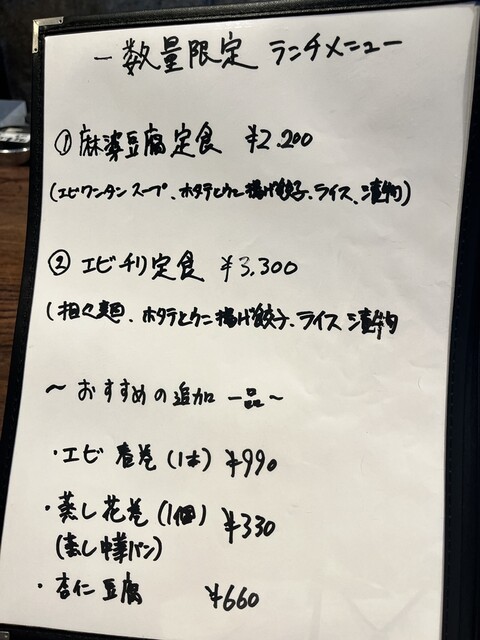 ー数量限定 ランチメニュー
① 麻婆豆腐定食 ¥2,200
(エビワンタンスープ、ホタテとウニ揚げ餃子、ライス、漬物)
② エビチリ定食 ¥3,300
(担々麺、ホタテとウニ揚げ餃子、ライス 漬物
〜おすすめの追加一品〜
・エビ春巻(1本) ¥990
・蒸し花巻(1個) ¥330
(蒸し中華パン)
・杏仁豆腐 ¥660